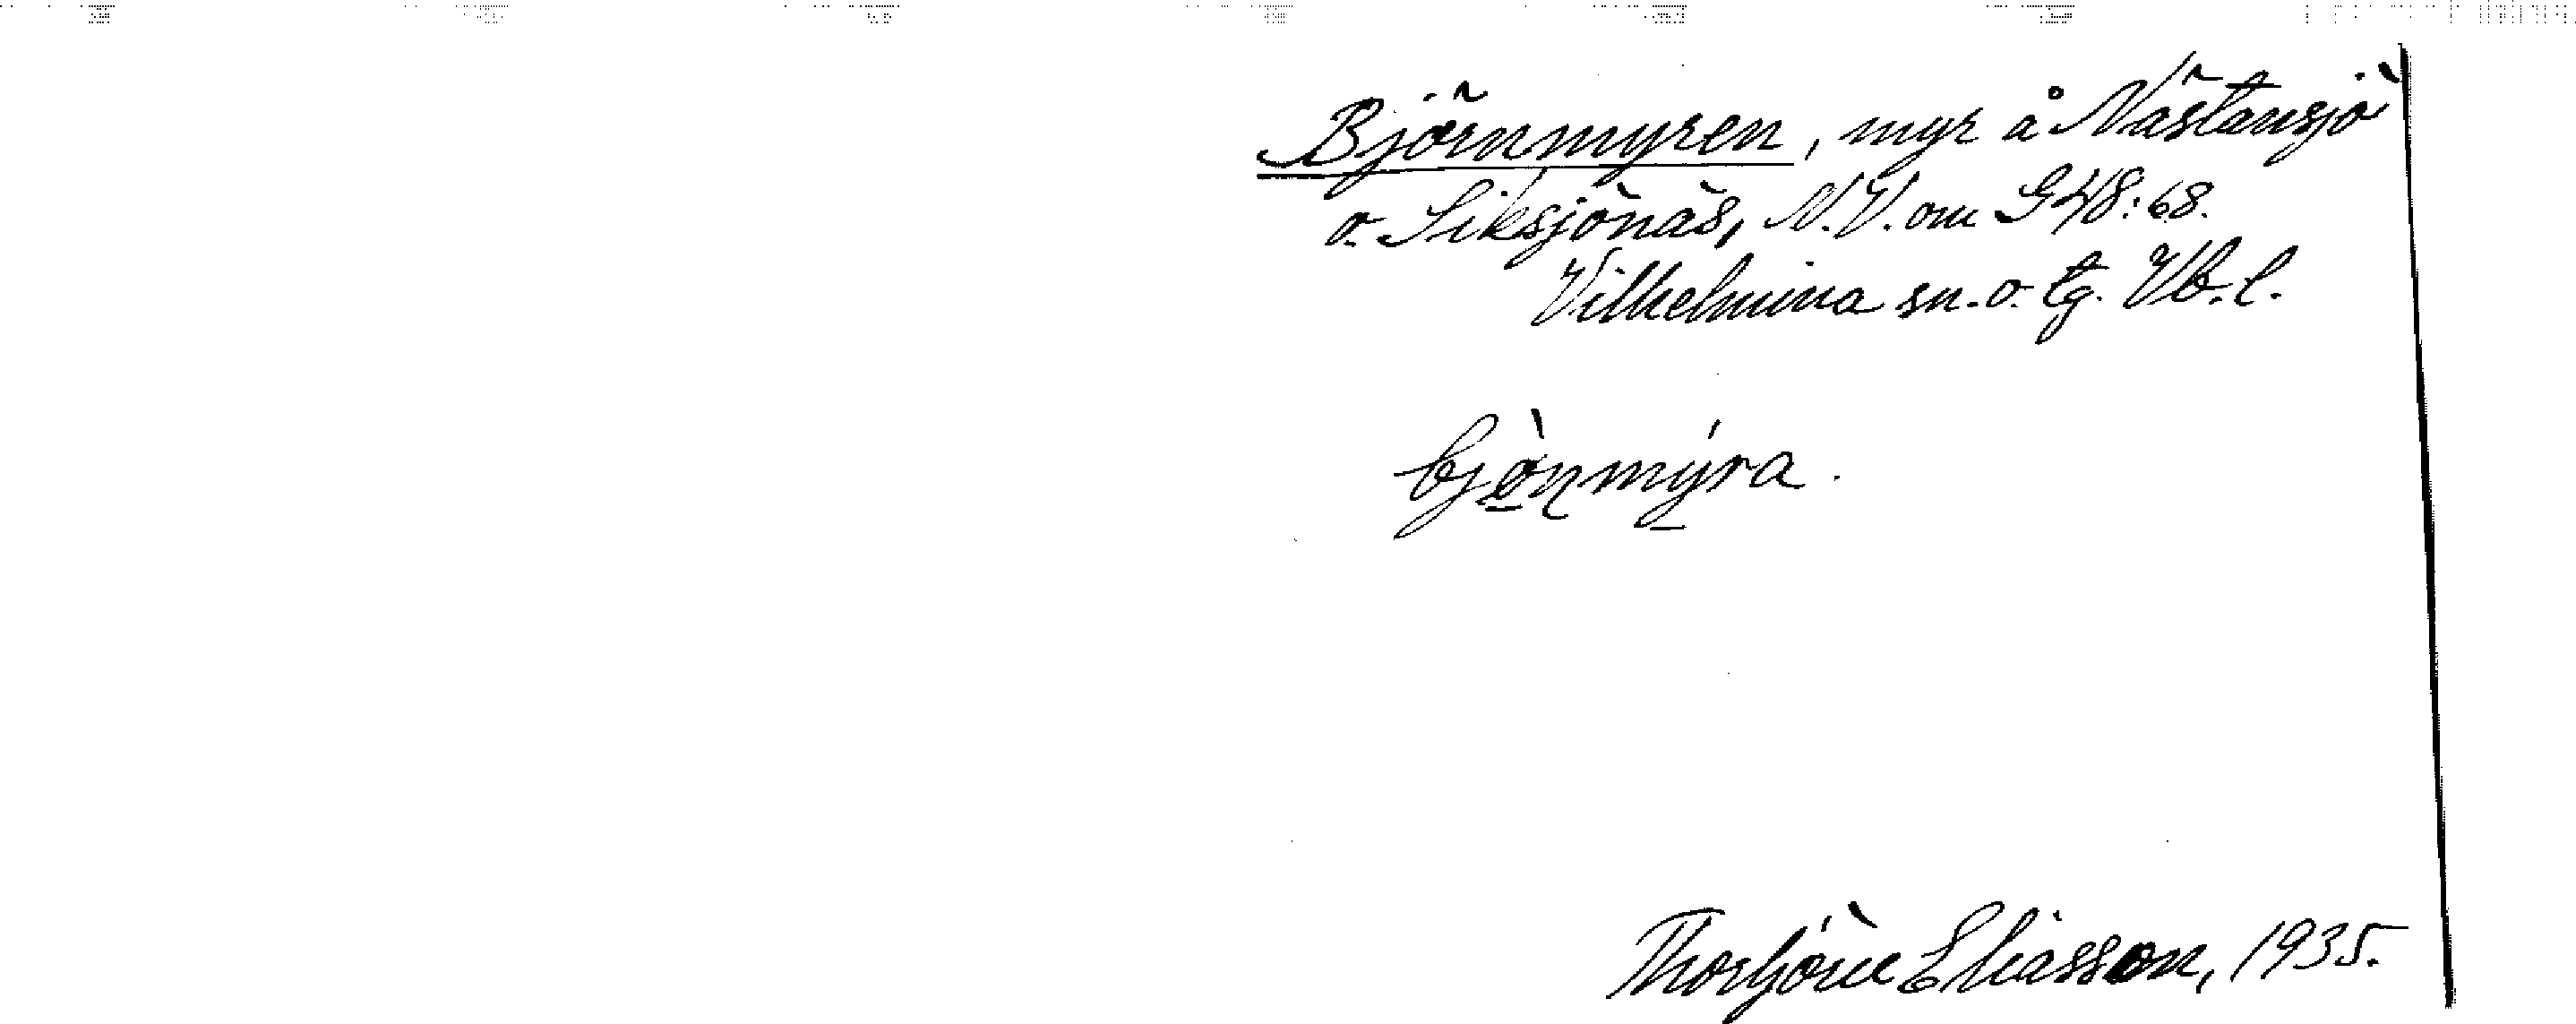 Björnmyren, myr å Nästansjö
o. Siksjönäs, N.V. om G 48:68.
Vilhelmina sn. o. tg. Vb. l.
bjò̱ṇmý̱ra.
Thorbjörn Eliasson, 1935.